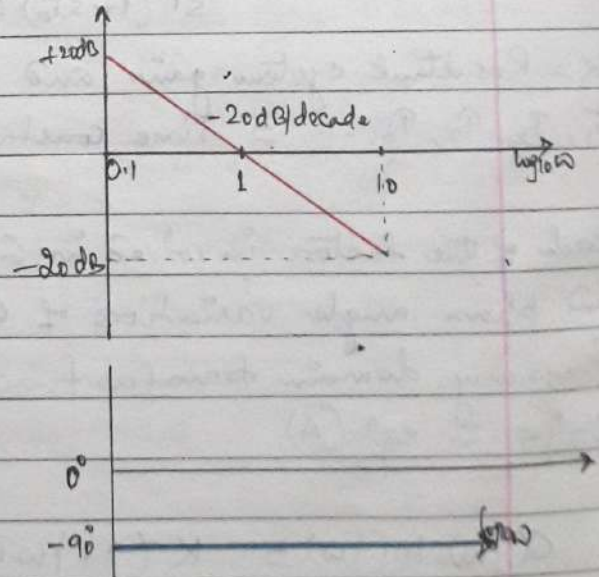 +20dB
-20dB/decade
0.1
1
10
log₁₀ω
-20dB
0°
-90°